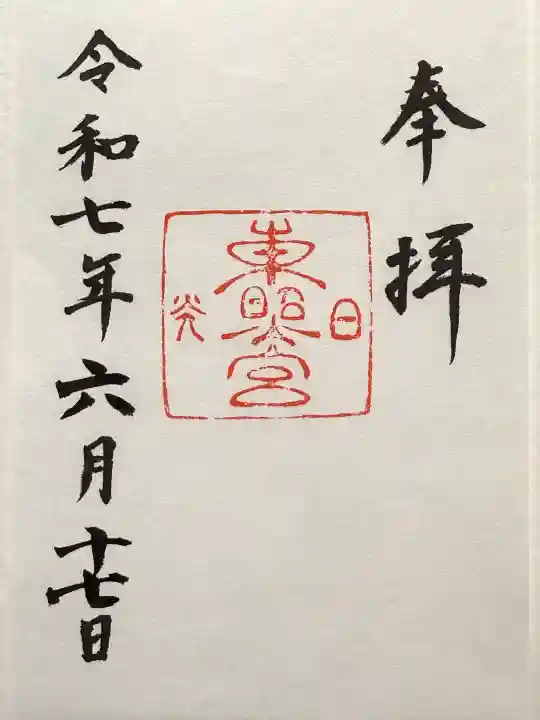 奉拝
日光
東照宮
令和七年六月十七日